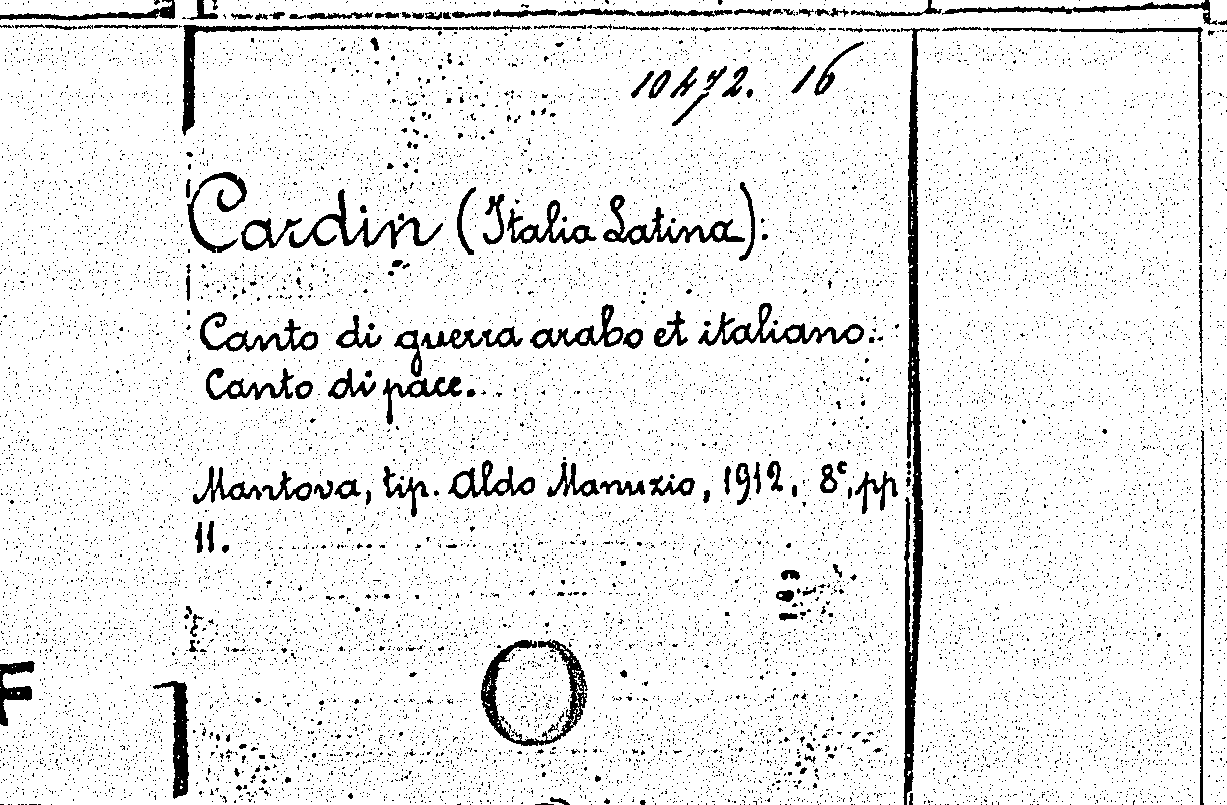 10472. 16
Cardin (Italia Latina).
Canto di guerra arabo et italiano.
Canto di pace.
Mantova, tip. Aldo Manuzio, 1912, 8°, pp
11.
F